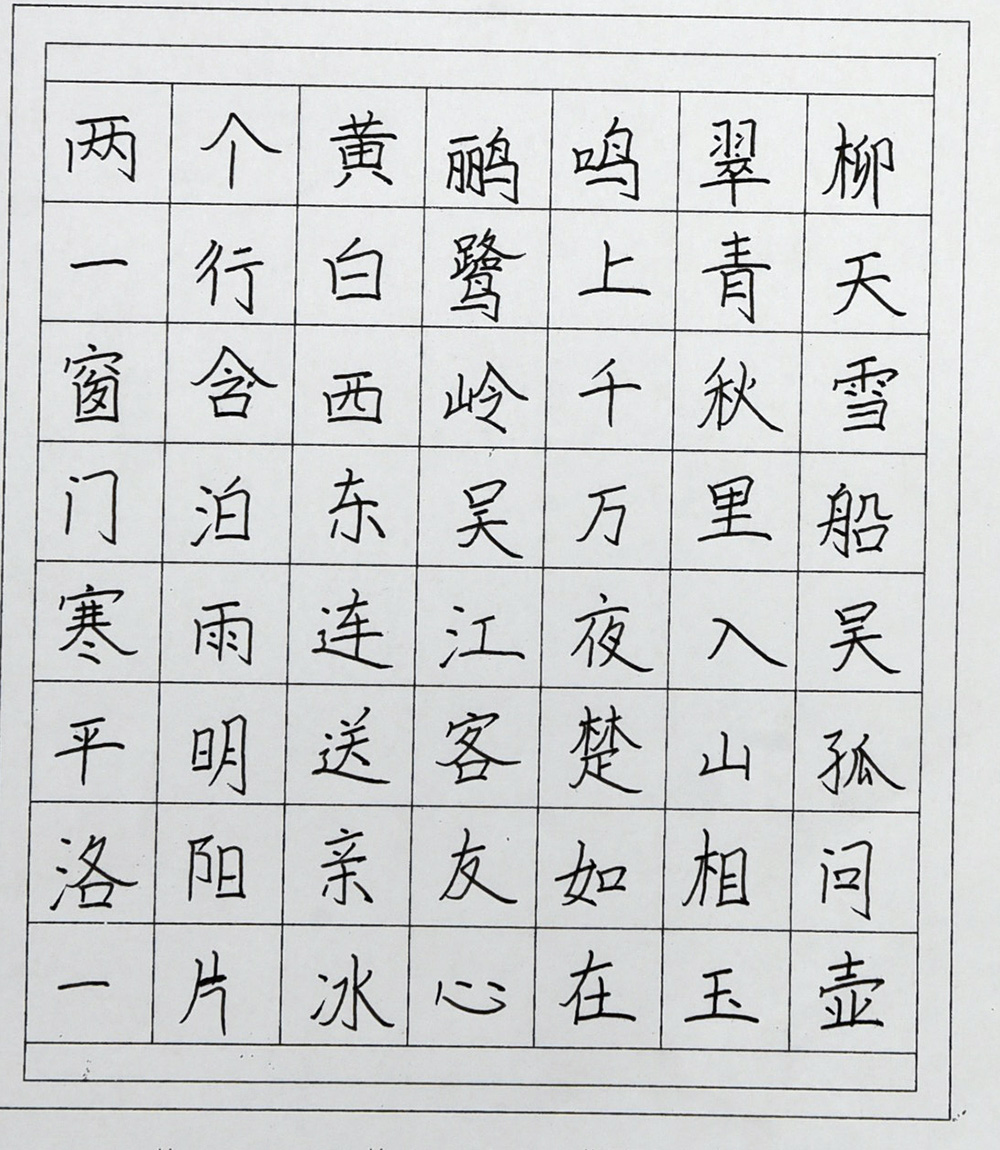 两个黄鹂鸣翠柳
一行白鹭上青天
窗含西岭千秋雪
门泊东吴万里船
寒雨连江夜入吴
平明送客楚山孤
洛阳亲友如相问
一片冰心在玉壶